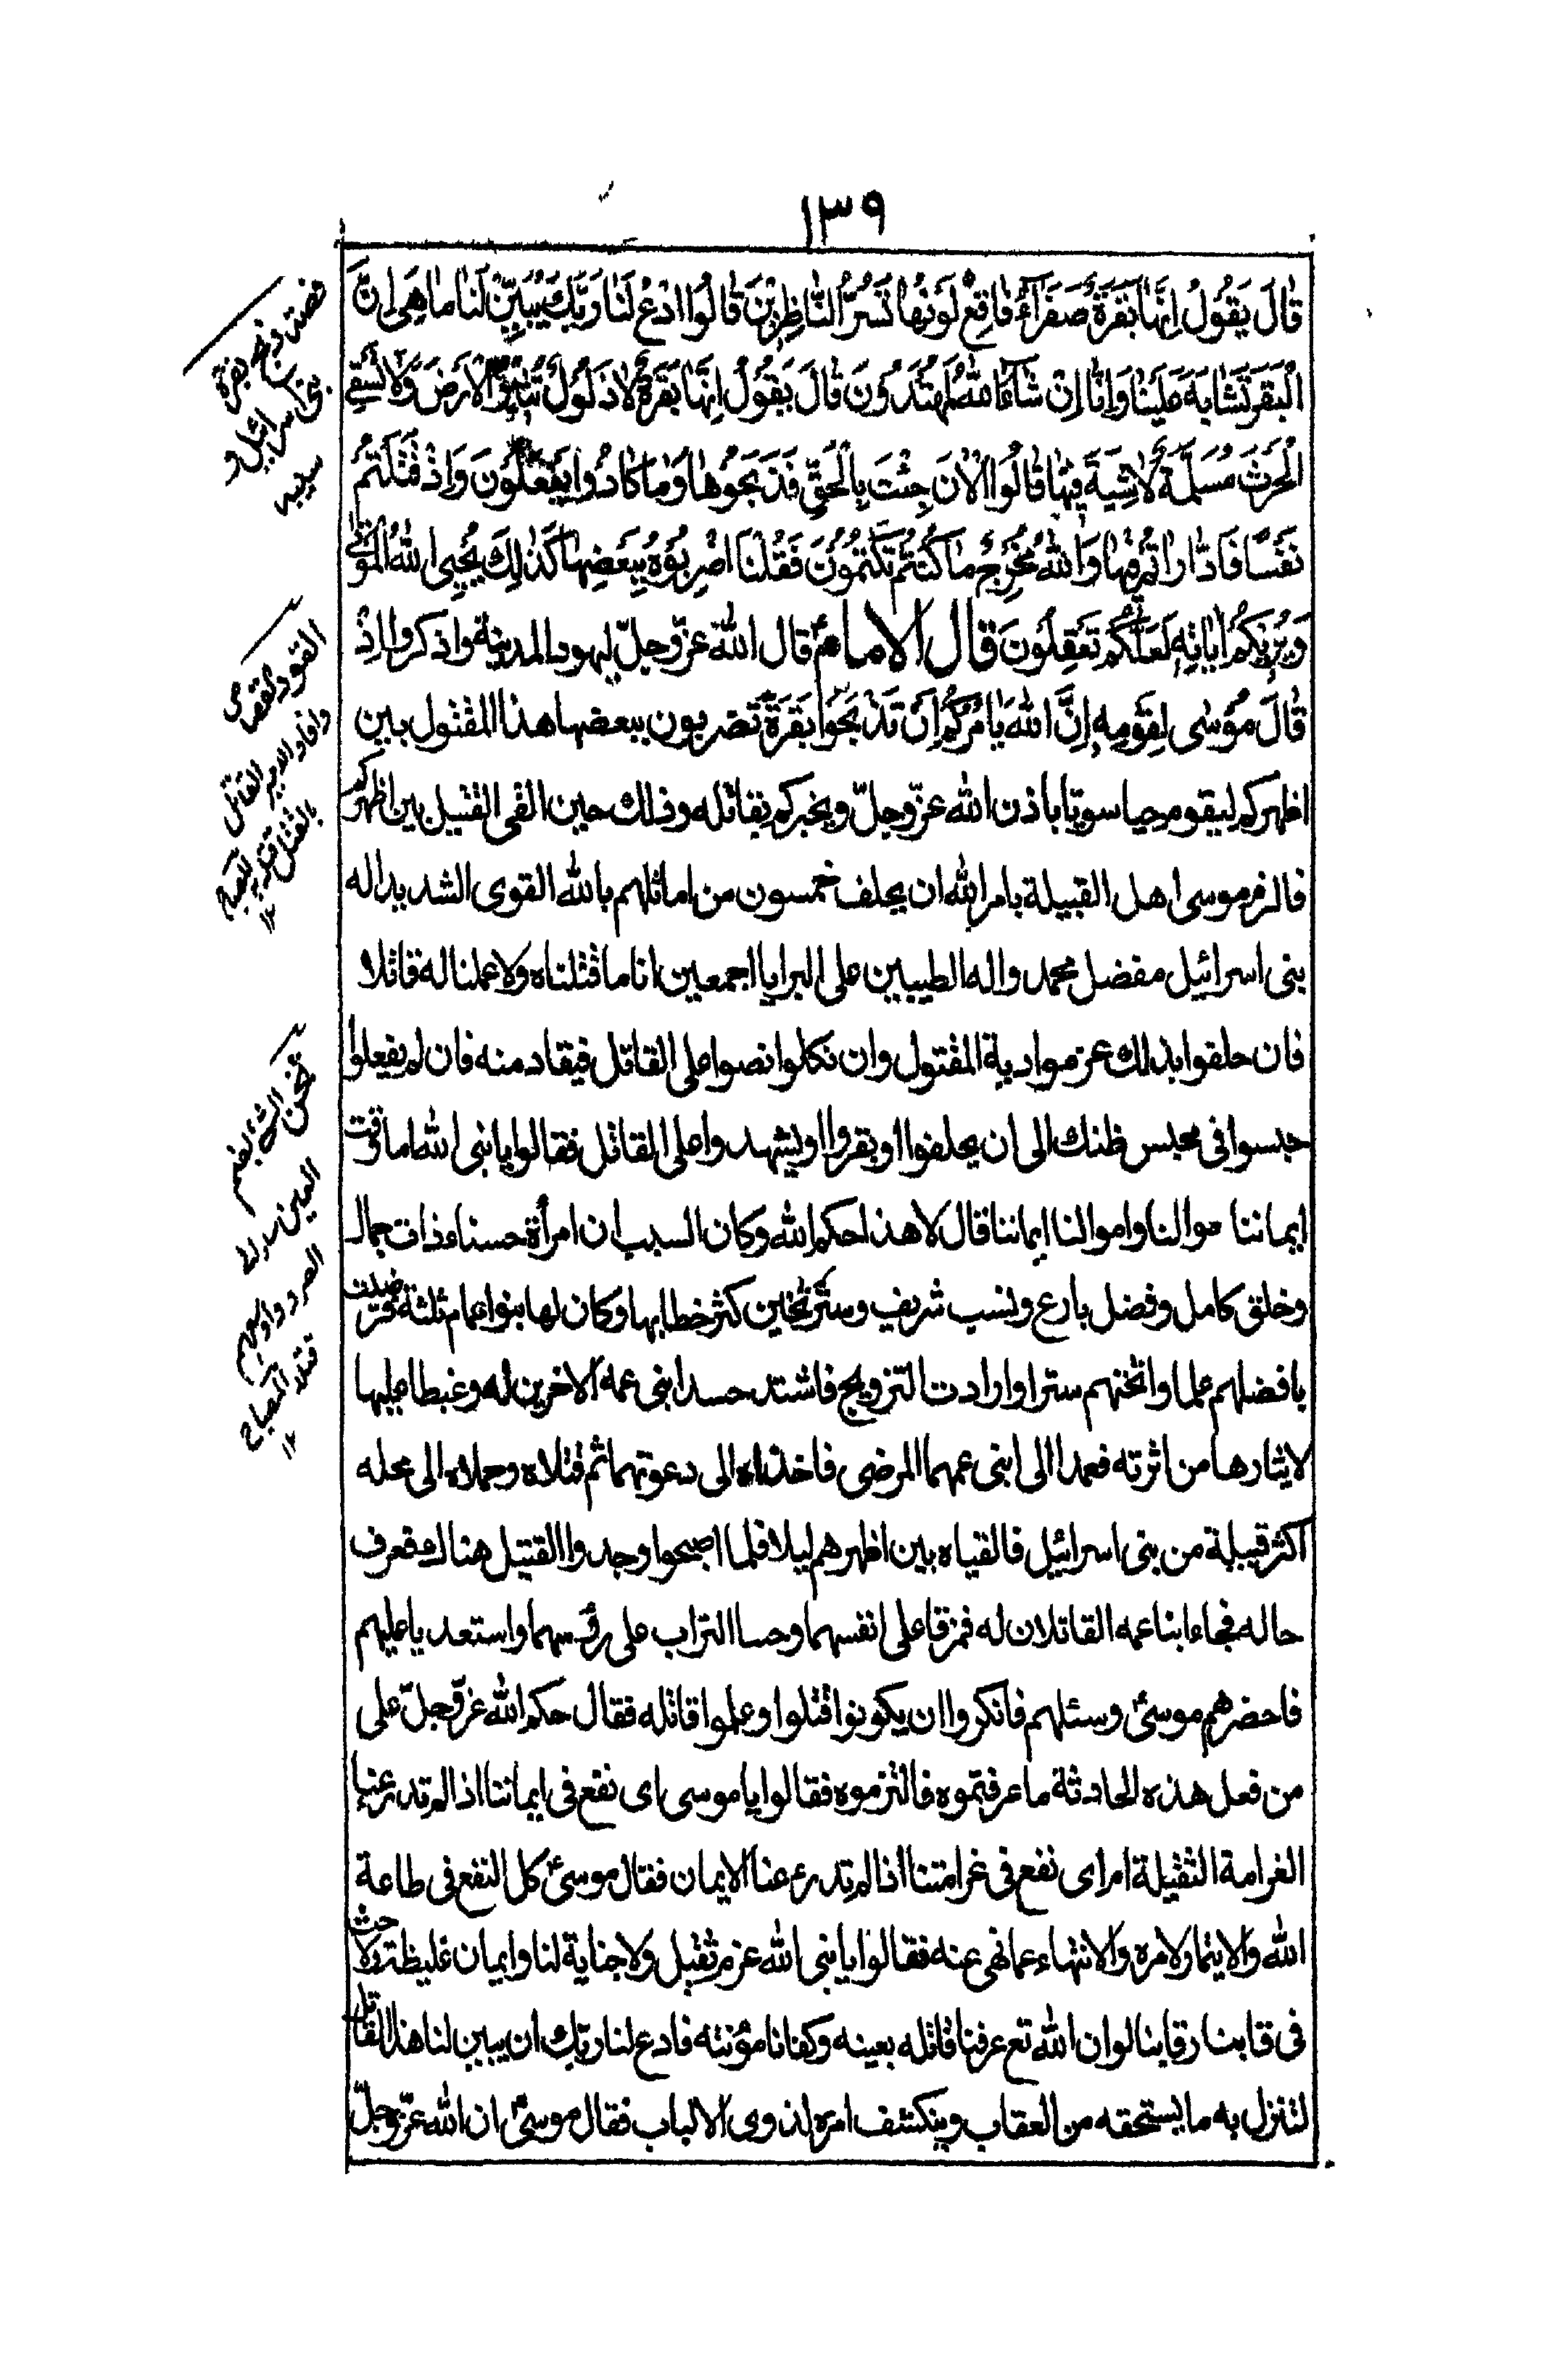 ١٣٩
قَالَ يَقُولُ اِنَّهَا بَقَرَةٌ صَفْرَآءُ فَاقِعٌ لَوْنُهَا تَسُرُّ النَّاظِرِيْنَ قَالُوا ادْعُ لَنَا رَبَّكَ يُبَيِّنْ لَنَا مَا هِيَ اِنَّ
الْبَقَرَ تَشَابَهَ عَلَيْنَا وَاِنَّا اِنْ شَآءَ اللهُ لَمُهْتَدُوْنَ قَالَ يَقُوْلُ اِنَّهَا بَقَرَةٌ لَا ذَلُوْلٌ تُثِيْرُ الْاَرْضَ وَلَا تَسْقِي
الْحَرْثَ مُسَلَّمَةٌ لَاشِيَةَ فِيْهَا قَالُوا الْاٰنَ جِئْتَ بِالْحَقِّ فَذَبَحُوْهَا وَمَا كَادُوا يَفْعَلُوْنَ وَاِذْ قَتَلْتُمْ
نَفْسًا فَادّٰارَاْتُمْ فِيْهَا وَاللهُ مُخْرِجٌ مَا كُنْتُمْ تَكْتُمُوْنَ فَقُلْنَا اضْرِبُوْهُ بِبَعْضِهَا كَذٰلِكَ يُحْيِي اللهُ الْمَوْتٰى
وَيُرِيْكُمْ اٰيَاتِهِ لَعَلَّكُمْ تَعْقِلُوْنَ قال الامام ع قال الله عزّ وجلّ ليهود المدينة واذكروا اِذْ
قَالَ مُوْسٰى لِقَوْمِهِ اِنَّ اللهَ يَاْمُرُكُمْ اِنْ تَذْبَحُوْا بَقَرَةً تضربون ببعضها هذا المقتول بين
اظهركم ليقوم حيا سويا باذن الله عزّ وجلّ ويخبركم بقاتله وذلك حين القى القتيل بين اظهركم
فالزم موسى اهل القبيلة بامر الله ان يحلف خمسون من اماثلهم بالله القوى الشديد اله
بنى اسرائيل مفضل محمد واله الطيبين على البرايا اجمعين انا ما قتلناه ولا علمنا له قاتلا
فان حلفوا بذلك غرموا دية المقتول وان نكلوا نصوا على القاتل فيقاد منه فان لم يفعلوا
حبسوا فى محبس ضنك الى ان يحلفوا او يقروا او يشهدوا على القاتل فقالوا يا نبى الله اما وقت
ايماننا موالنا واموالنا ايماننا قال لا هذا حكم الله وكان السبب ان امرأة حسناء ذات جمال
وخلق كامل وفضل بارع ونسب شريف وستر ثخين كثر خطابها وكان لها بنوا عمام ثلثة فرضيت
بافضلهم علما واثخنهم سترا وارادت التزويج فاشتد حسد ابنى عمه الاخرين له وغبطا عليها
لايثارها من اثرته فعمدا الى ابنى عمهما المرضى فاخذاه الى دعوتهما ثم قتلاه وحملاه الى محله
اكثر قبيلة من بنى اسرائيل فالقياه بين اظهرهم ليلا فلما اصبحوا وجدوا القتيل هناك فعرف
حاله فجاء ابنا عمه القاتلان له فمزقا على انفسهما وحسا التراب على رؤسهما واستعديا عليهم
فاحضرهم موسى ع وسئلهم فانكروا ان يكونوا قتلوا وعلموا قاتله فقال حكم الله عزّ وجلّ على
من فعل هذه الحادثة ما عرفتموه فالتزموه فقالوا يا موسى اى نفع فى ايماننا اذا لم تدرء عنا
الغرامة الثقيلة ام اى نفع فى غرامتنا اذا لم تدرء عنا الايمان فقال موسى ع كل النفع فى طاعة
الله والايتمار لامره والانتهاء عما نهى عنه فقالوا يا نبى الله غرم ثقيل ولا جناية لنا وايمان غليظة ولا حق
فى رقابنا لو ان الله تع عرفنا قاتله بعينه وكفانا مؤنته فادع لنا ربك ان يبين لنا هذا القاتل
لتنزل به ما يستحقه من العقاب وينكشف امره لذوى الالباب فقال موسى ع ان الله عزّ وجلّ
قصة ذبح بقرة
بنى اسرائيل و
سببه
القود القصاص
واقاد الامير القاتل
بالقتيل قتله به
١٢
ثخن الشئ
١٢